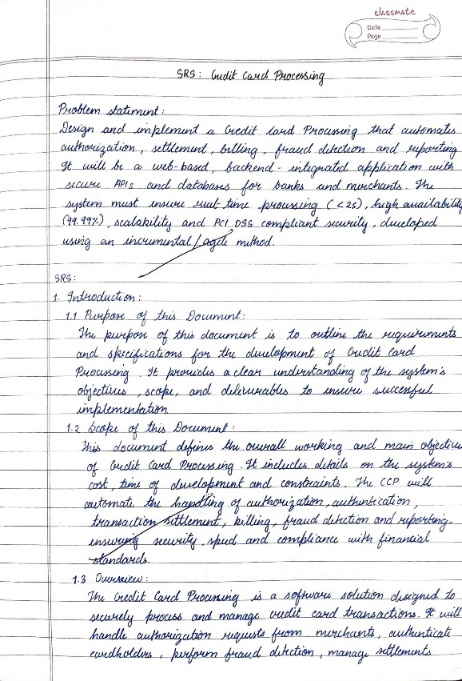 classmate
Date
Page
SRS: Credit Card Processing
Problem statement:
Design and implement a Credit Card Processing that automates
authorization, settlement, billing, fraud detection and reporting
It will be a web-based, backend-integrated application with
secure APIs and databases for banks and merchants. The
system must insure real time processing (<2s), high availability
(99.99%), scalability and PCI DSS compliant security, developed
using an incremental/agile method.
SRS:
1. Introduction:
1.1 Purpose of this Document:
The purpose of this document is to outline the requirements
and specifications for the development of Credit Card
Processing. It provides a clear understanding of the system's
objectives, scope, and deliverables to ensure successful
implementation.
1.2 Scope of this Document:
This document defines the overall working and main objective
of Credit Card Processing. It includes details on the system's
cost, time of development and constraints. The CCP will
automate the handling of authorization, authentication,
transaction settlement, billing, fraud detection and reporting,
ensuring security, speed and compliance with financial
standards.
1.3 Overview:
The Credit Card Processing is a software solution designed to
securely process and manage credit card transactions. It will
handle authorization requests from merchants, authenticat
cardholders, perform fraud detection, manage settlements